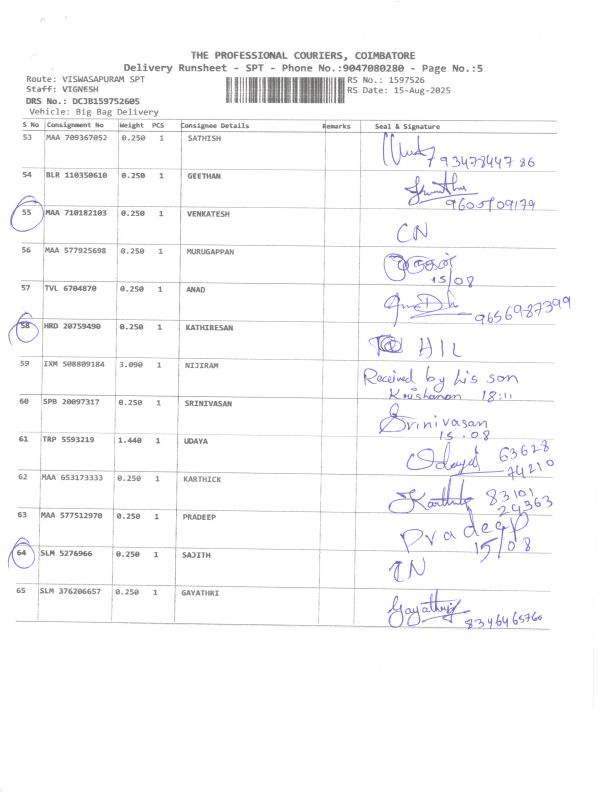 THE PROFESSIONAL COURIERS, COIMBATORE
Delivery Runsheet - SPT - Phone No.:9047080280 - Page No.:5
Route: VISWASAPURAM SPT RS No.: 1597526
Staff: VIGNESH RS Date: 15-Aug-2025
DRS No.: DCJB159752605
Vehicle: Big Bag Delivery
S No Consignment No Weight PCS Consignee Details Remarks Seal & Signature
53 MAA 709367052 0.250 1 SATHISH
7934784786
54 BLR 110350610 0.250 1 GEETHAN
9605709179
55 MAA 710182103 0.250 1 VENKATESH CN
56 MAA 577925698 0.250 1 MURUGAPPAN
15/08
57 TVL 6704870 0.250 1 ANAD
9656987399
58 HRO 20759490 0.250 1 KATHIRESAN HIL
59 IXM 508809184 3.090 1 NIJIRAM Received by his son
Krishanan 18:11
60 SPB 20097317 0.250 1 SRINIVASAN Srinivasan
15.08
61 TRP 5593219 1.440 1 UDAYA 63628
74210
62 MAA 653173333 0.250 1 KARTHICK Karthik 83101
24363
63 MAA 577512970 0.250 1 PRADEEP Pradeep
15/08
64 SLM 5276966 0.250 1 SAJITH CN
65 SLM 376206657 0.250 1 GAYATHRI Gayathri
8346465760